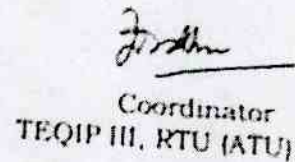 Coordinator
TEQIP III, RTU (ATU)